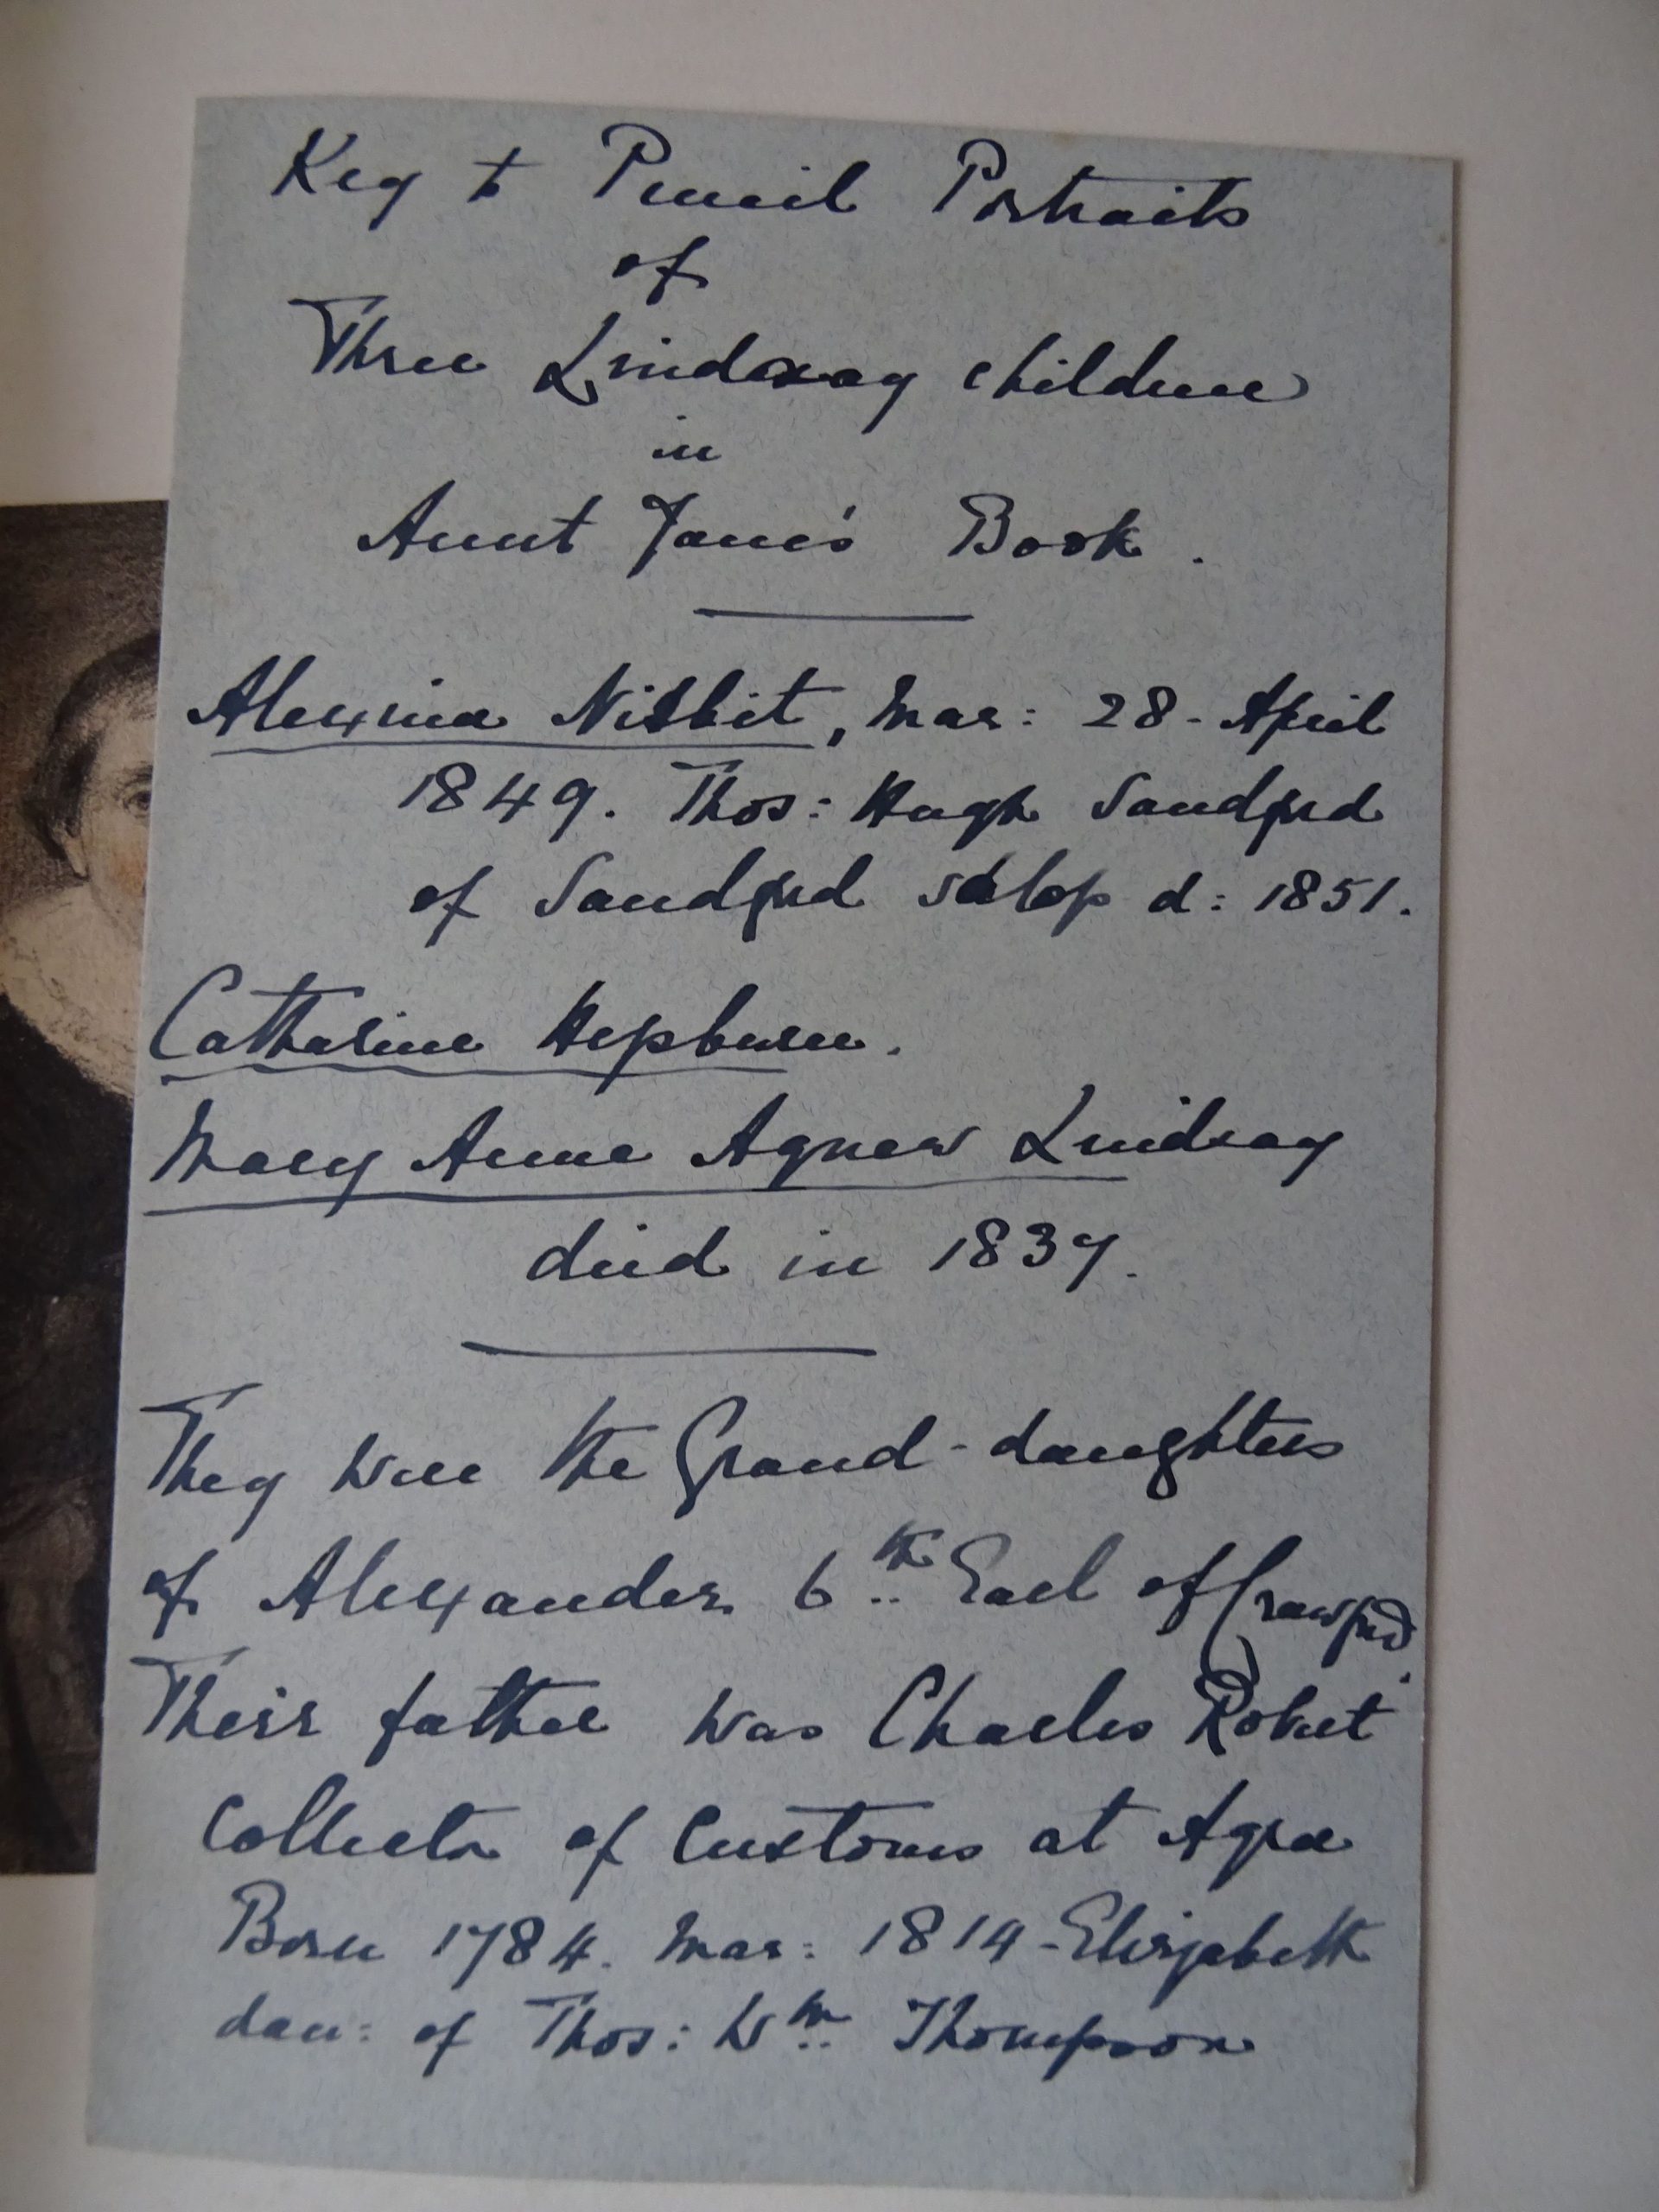 Key to Pencil Portraits
of
Three Lindsay children
in
Aunt Jane's Book.
Alexina Nisbit, Mar: 28 - April
1849. Thos: Hugh Sandford
of Sandford Salop d: 1851.
Catharine Hepburn.
Mary Anne Agnew Lindsay
died in 1837.
They were the Grand-daughters
of Alexander 6th Earl of Crawford.
Their father was Charles Robert
Collector of Customs at Agra
Born 1784. Mar: 1814 - Elizabeth
dau: of Thos: Wm Thompson